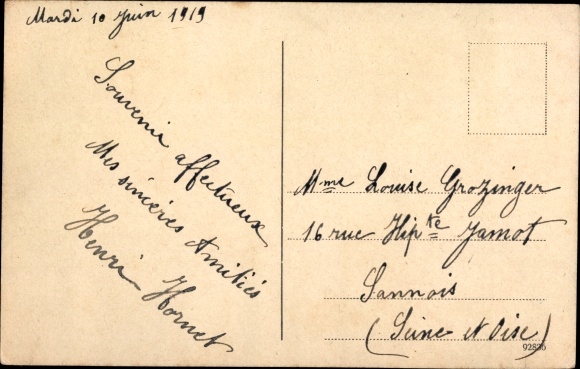 Mardi 10 Juin 1919
Souvenir affectueux
Mes sincères Amitiés
Henri Hornet
Mme Louise Grozinger
16 rue Hipte Jamot
Sannois
(Seine et Oise)